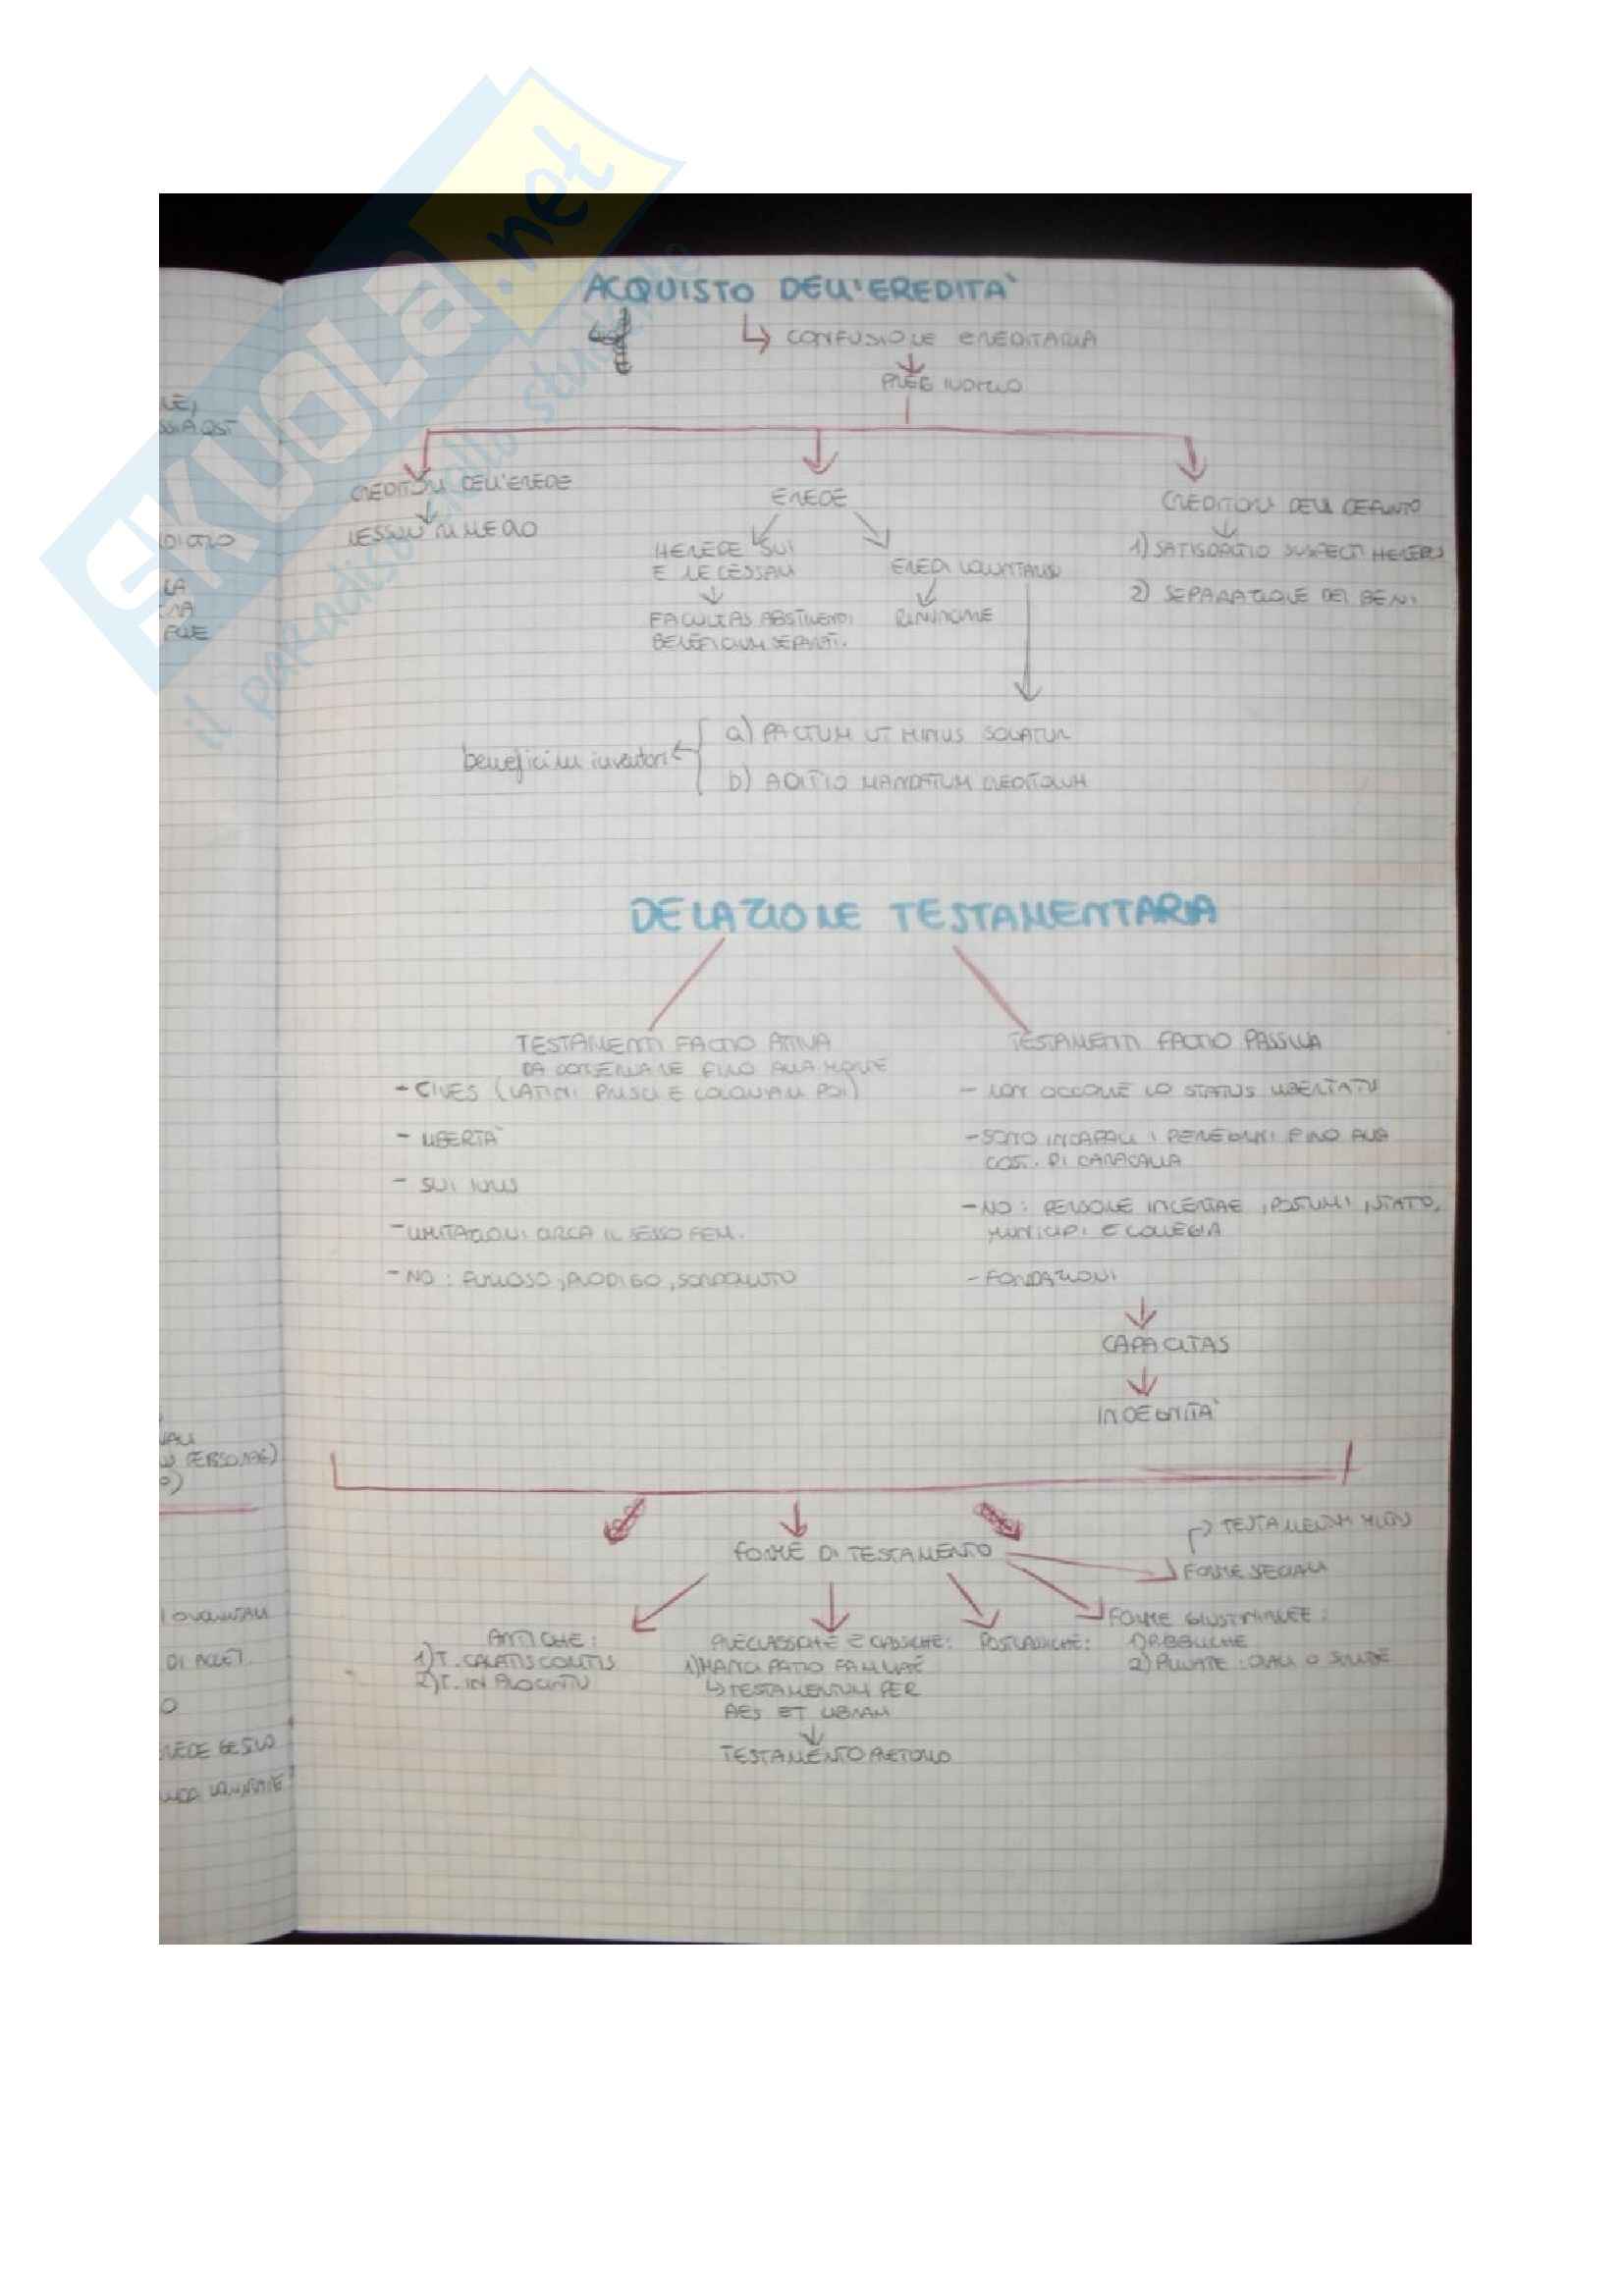 SKUOLA.net
il paradiso dello studente
ACQUISTO DELL'EREDITA'
CONFUSIONE EREDITARIA
CREDITORI DELL'EREDE
NESSUN RIMEDIO
EREDE
HEREDE SUI
E NECESSARI
FACULTAS ABSTINENDI
BENEFICIUM SEPARATI.
EREDI VOLONTARI
CREDITORI DELL DEFUNTO
1) SATISDATIO SUSPECTI HEREDIS
2) SEPARAZIONE DEI BENI
beneficium inventari
a) PACTUM UT MINUS SOLVATUR
b) ADITIO MANDATUM CREDITORUM
DELAZIONE TESTAMENTARIA
TESTAMENTI FACTIO ATTIVA
DA CONSERVARE FINO ALLA MORTE
- CIVES (LATINI PRISCI E COLONIARI POI)
- LIBERTA'
- SUI IURIS
- LIMITAZIONI CIRCA IL SESSO FEM.
- NO : FURIOSO, PRODIGO, SORDOMUTO
TESTAMENTI FACTIO PASSIVA
- NON OCCORRE LO STATUS LIBERTATIS
- SONO INCAPACI I PEREGRINI FINO ALLA
COST. DI CARACALLA
- NO : PERSONE INCERTAE, POSTUMI, STATO,
MUNICIPI E COLLEGIA
- FONDAZIONI
CAPACITAS
INDEGNITA'
FORME DI TESTAMENTO
FORME SPECIALI
ANTICHE :
1) T. CALATIS COMITIS
2) T. IN PROCINTU
PRECLASSICHE E CLASSICHE :
1) MANCIPATIO FAMILIAE
TESTAMENTUM PER
AES ET LIBRAM
TESTAMENTO PRETORIO
POSTCLASSICHE :
FORME GIUSTINIANEE :
1) PUBBLICHE
2) PRIVATE : ORALI O SCRITTE